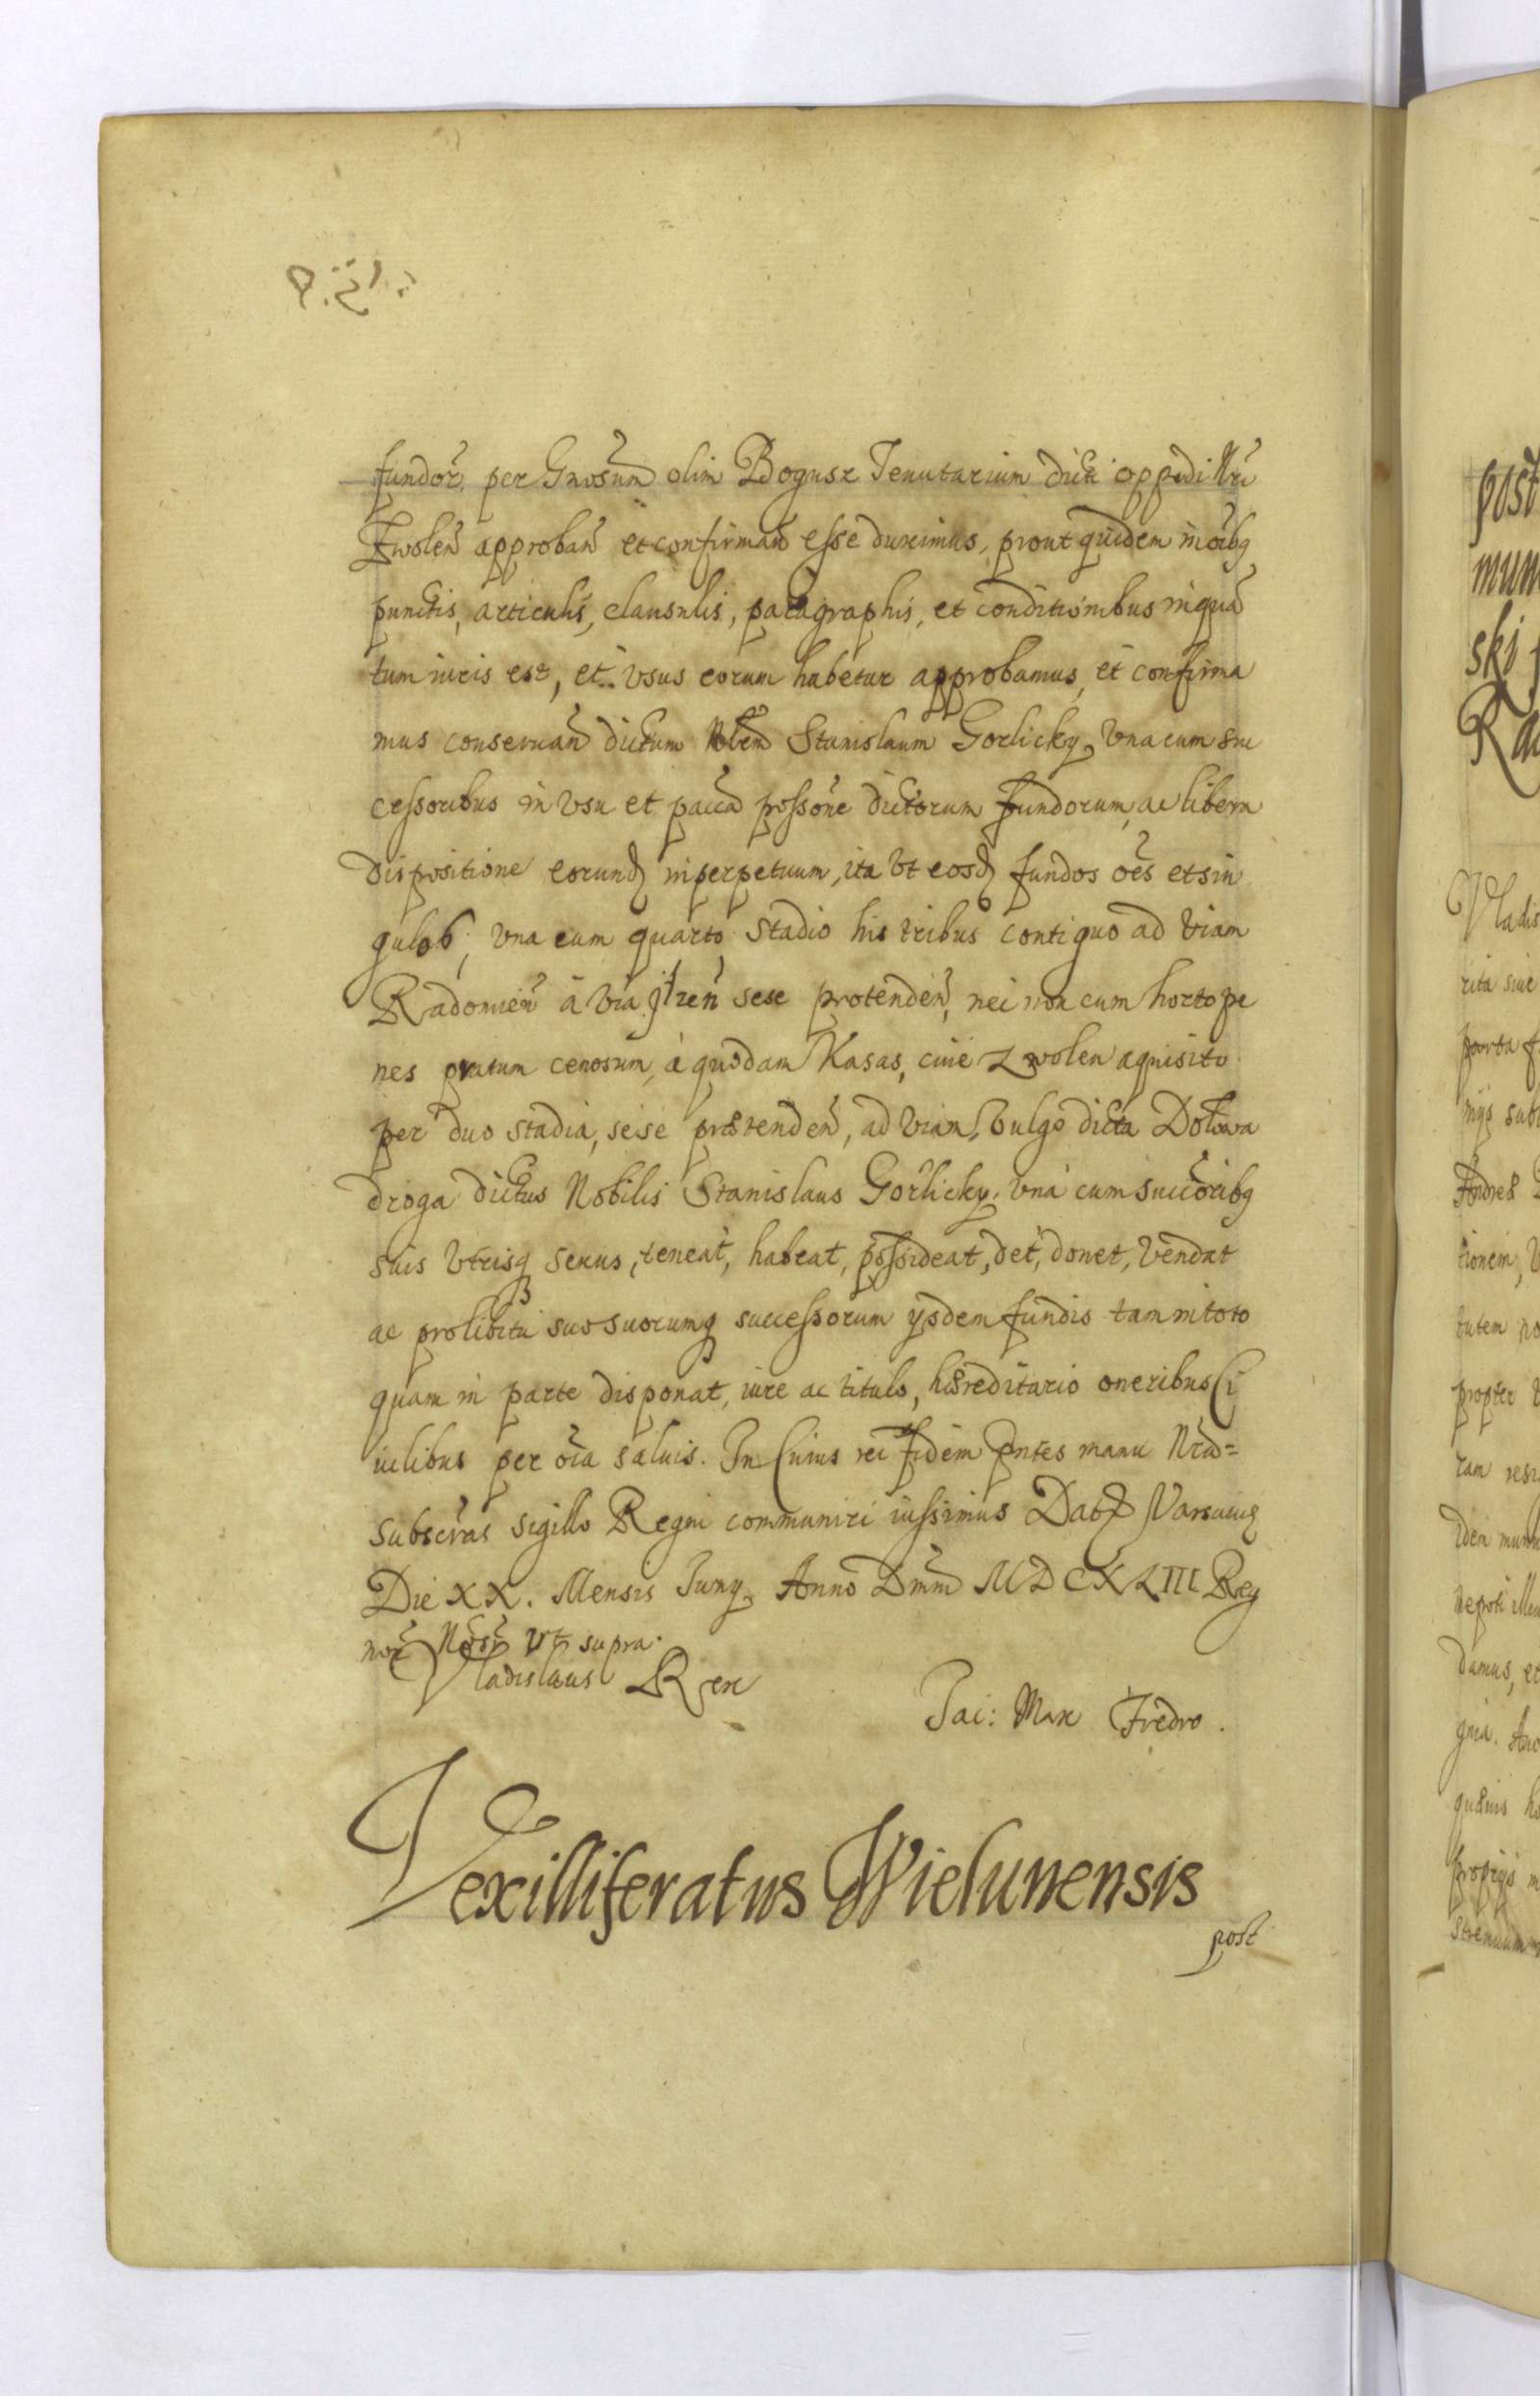 fundor̃ per Gnosum olim Bogusz Tenutarium dicti oppidi Nri
Zwolen̄ approban̄ et confirman̄ esse duximus, prout quidem in oĩbq
punctis, articulis, clausulis, paragraphis, et conditionibus inquã
tum iuris est, et usus eorum habetur approbamus, et confirma
mus conseruan̄ dictum Nobilem Stanislaum Gorlicky, vna cum suc
cessoribus in Vsu et pacca possõne dictorum fundorum, ac libera
dispositione eorund inperpetuum, ita Vt eosd fundos oẽs et sin
gulos, vna cum quarto stadio his tribus contiguo ad Viam
Radomien̄ à via Jlzen̄ sese protenden̄, nec non cum horto pe
nes pratum cenosum, à quodam Kasas, ciue Zwolen aquisito
per duo stadia, sese prætenden̄, ad viam, vulgo dicta Dołowa
droga dictus Nobilis Stanislaus Gorlicky, vna cum succõribq
suis Vtrisq sexus, teneat, habeat, possideat, det, donet, Vendat
ac prolibitu suo suorumq successorum ysdem fundis tam in toto
quam in parte disponat, iure ac titulo, hæreditario oneribus Ci
uilibus per oĩa saluis. In Cuius rei fidem Pntes manu Nrã=
subscras sigillo Regni communiri iussimus Dat Varsauiæ
Die XX. Mensis Juny, Anno Dnni MDCXLIII Reg
nor̃ Nror̃ vt supra.
Vladislaus Rex
Jac: Max Fredro.
Vexilliferatus Wielunensis
post